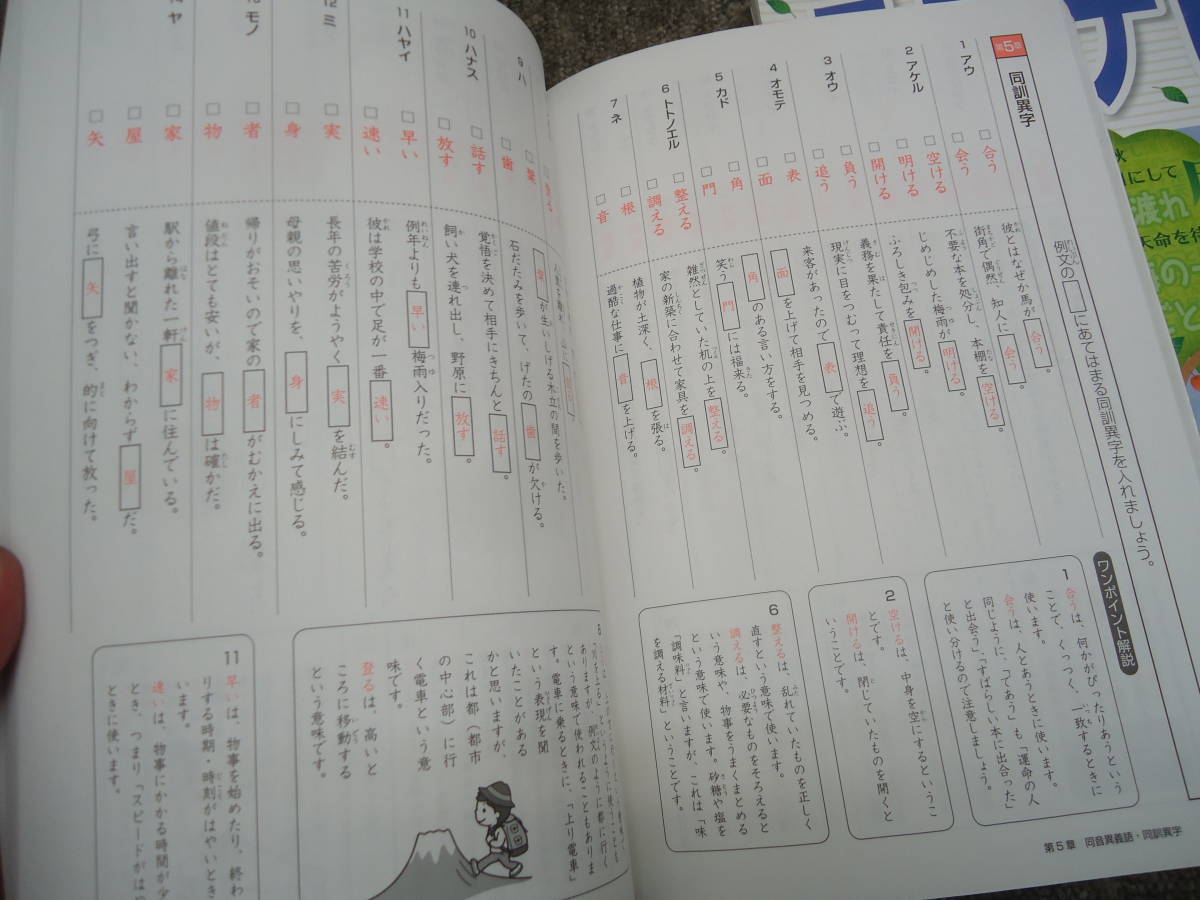 第5章
同訓異字
例文の□にあてはまる同訓異字を入れましょう。
1 アウ
□ 合う
彼とはなぜか馬が合う。
□ 会う
街角で偶然、知人に会う。
2 アケル
□ 空ける
不要な本を処分し、本棚を空ける。
□ 明ける
じめじめした梅雨が明ける。
□ 開ける
ふろしき包みを開ける。
3 オウ
□ 負う
義務を果たして責任を負う。
□ 追う
現実に目をつむって理想を追う。
4 オモテ
□ 表
来客があったので表で遊ぶ。
□ 面
面を上げて相手を見つめる。
5 カド
□ 角
角のある言い方をする。
□ 門
笑う門には福来る。
6 トトノエル
□ 整える
雑然としていた机の上を整える。
□ 調える
家の新築に合わせて家具を調える。
7 ネ
□ 根
植物が土深く、根を張る。
□ 音
過酷な仕事に音を上げる。
ワンポイント解説
1
合うは、何かがぴったりあうという
ことで、くっつく、一致するときに
使います。
会うは、人とあうときに使います。
同じように、「であう」も「運命の人
と出会う」、「すばらしい本に出合った」
と使い分けるので注意しましょう。
2
空けるは、中身を空にするというこ
とです。
開けるは、閉じていたものを開くと
いうことです。
6
整えるは、乱れていたものを正しく
直すという意味で使います。
調えるは、必要なものをそろえると
いう意味や、物事をうまくまとめる
という意味で使います。砂糖や塩を
「調味料」と言いますが、これは「味
を調える材料」ということです。
第5章 同音異義語・同訓異字
9 ハ
□ 葉
葉が生いしげる木立の間を歩いた。
□ 歯
石だたみを歩いて、げたの歯が欠ける。
10 ハナス
□ 話す
覚悟を決めて相手にきちんと話す。
□ 放す
飼い犬を連れ出し、野原に放す。
11 ハヤイ
□ 早い
例年よりも早い梅雨入りだった。
□ 速い
彼は学校の中で足が一番速い。
12 ミ
□ 実
長年の苦労がようやく実を結んだ。
□ 身
母親の思いやりを、身にしみて感じる。
モノ
□ 者
帰りがおそいので家の者がむかえに出る。
□ 物
値段はとても安いが、物は確かだ。
ヤ
□ 家
駅から離れた一軒家に住んでいる。
□ 屋
言い出すと聞かない、わからず屋だ。
□ 矢
弓に矢をつぎ、的に向けて放った。
8
という意味で使われることもありま
す。電車に乗るときに、「上り電車」
という表現を聞
いたことがある
かと思いますが、
これは都（都市
の中心部）に行
く電車という意
味です。
登るは、高いと
ころに移動する
という意味です。
11
早いは、物事を始めたり、終わ
りする時期・時刻がはやいとき
います。
速いは、物事にかかる時間が少
とき、つまり「スピードがは
ときに使います。
にして
渡れ
天命を待